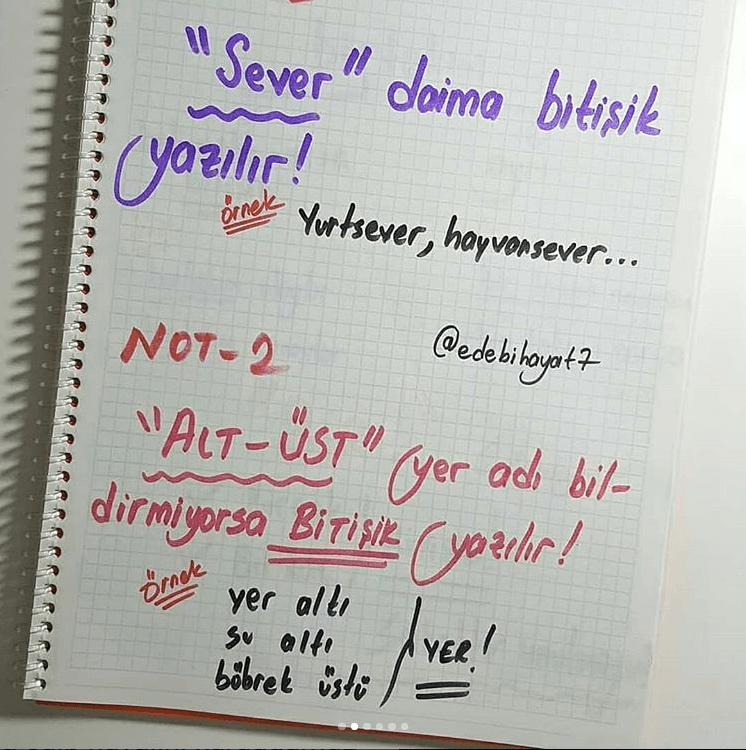 "Sever" daima bitişik
yazılır!
örnek Yurtsever, hayvansever...
NOT-2
@edebihayat7
"ALT-ÜST" yer adı bil-
dirmiyorsa BiTişik yazılır!
Örnek yer altı
su altı
böbrek üstü
YER!